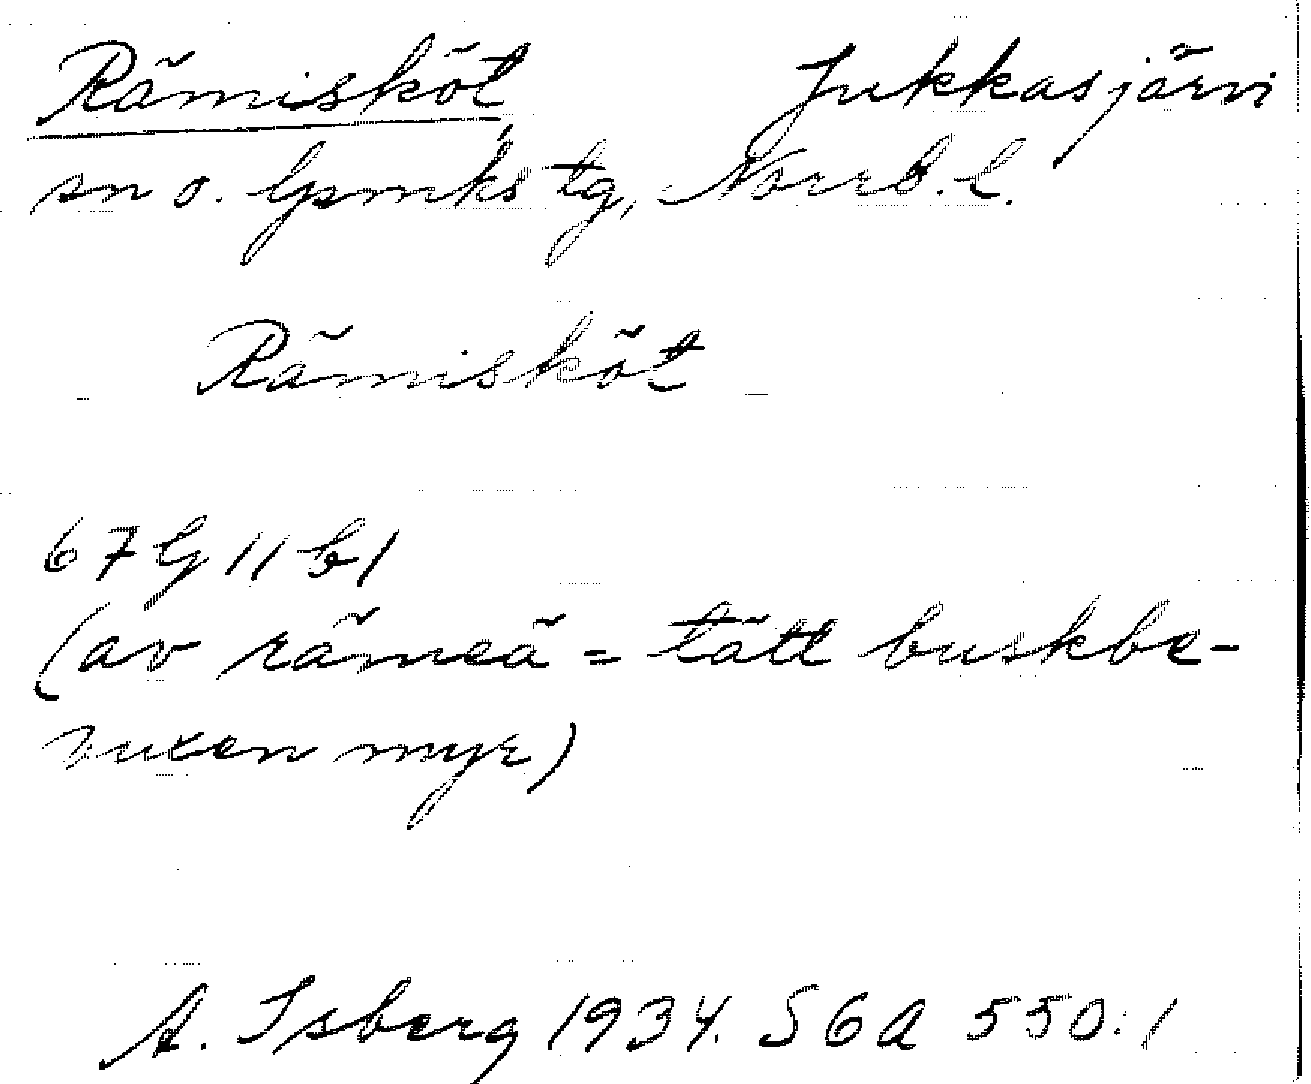 Rämisköt Jukkasjärvi
sn o. lpmks tg, Norrb. l.
Rämisköt
67 G 11 b 1
(av rämeä = tätt buskbe-
vuxen myr)
A. Isberg 1934. SGA 550:1